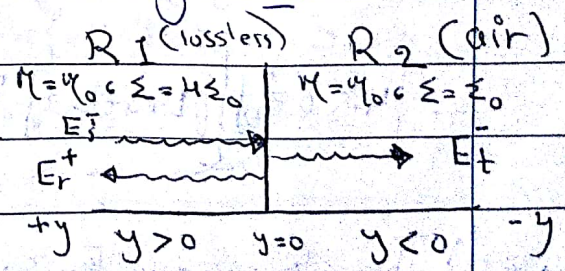 R1 (lossless) R2 (air)
μ=μ₀ ε=4ε₀ μ=μ₀ ε=ε₀
Eᵢ⁻
Eᵣ⁺ Eₜ⁻
+y y>0 y=0 y<0 -y